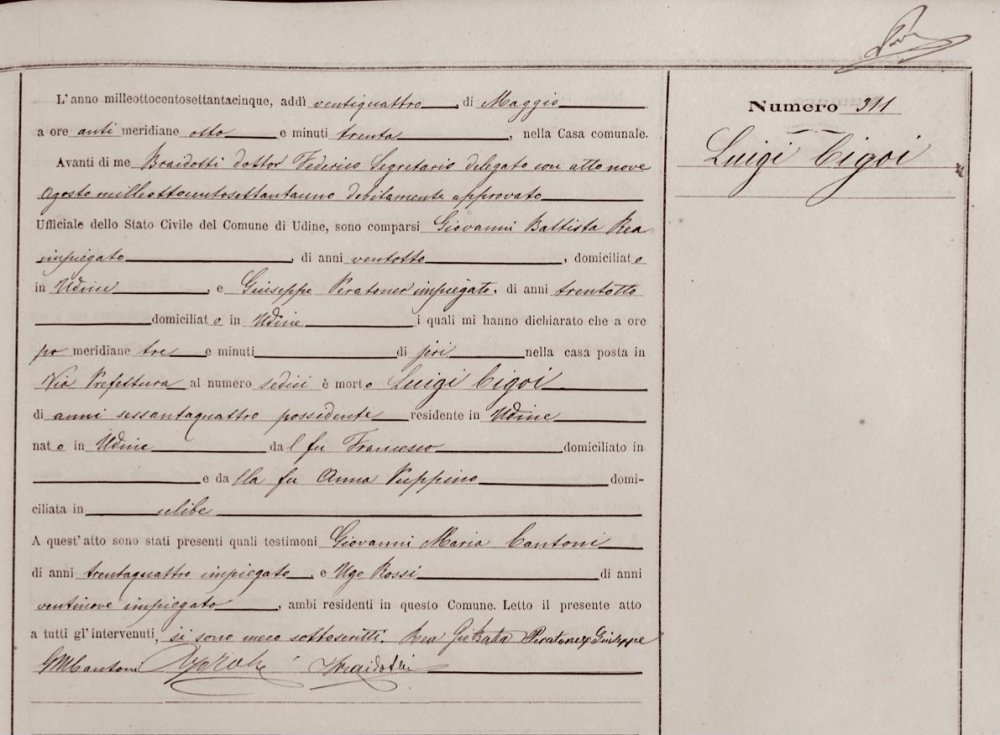 Numero 311
Luigi Cigoi
L'anno milleottocentosettantacinque, addì ventiquattro, di Maggio
a ore anti meridiane otto e minuti trenta, nella Casa comunale.
Avanti di me Braidotti dottor Federico Segretario delegato con atto nove
Agosto milleottocentosettantauno debitamente approvato
Ufficiale dello Stato Civile del Comune di Udine, sono comparsi Giovanni Battista Rea
impiegato, di anni ventotto, domiciliato
in Udine, e Giuseppe Peratoner impiegato, di anni trentotto
domiciliato in Udine i quali mi hanno dichiarato che a ore
po meridiane tre e minuti di jeri nella casa posta in
Via Prefettura al numero sedici è morto Luigi Cigoi
di anni sessantaquattro possidente residente in Udine
nato in Udine dal fu Francesco domiciliato in
e dalla fu Anna Puppino domi-
ciliata in celibe
A quest'atto sono stati presenti quali testimoni Giovanni Maria Cantoni
di anni trentaquattro impiegato, e Ugo Rossi di anni
ventinove impiegato, ambi residenti in questo Comune. Letto il presente atto
a tutti gl'intervenuti, si sono meco sottoscritti. Rea Gio Batta Peratoner Giuseppe
GMCantoni Braidotti